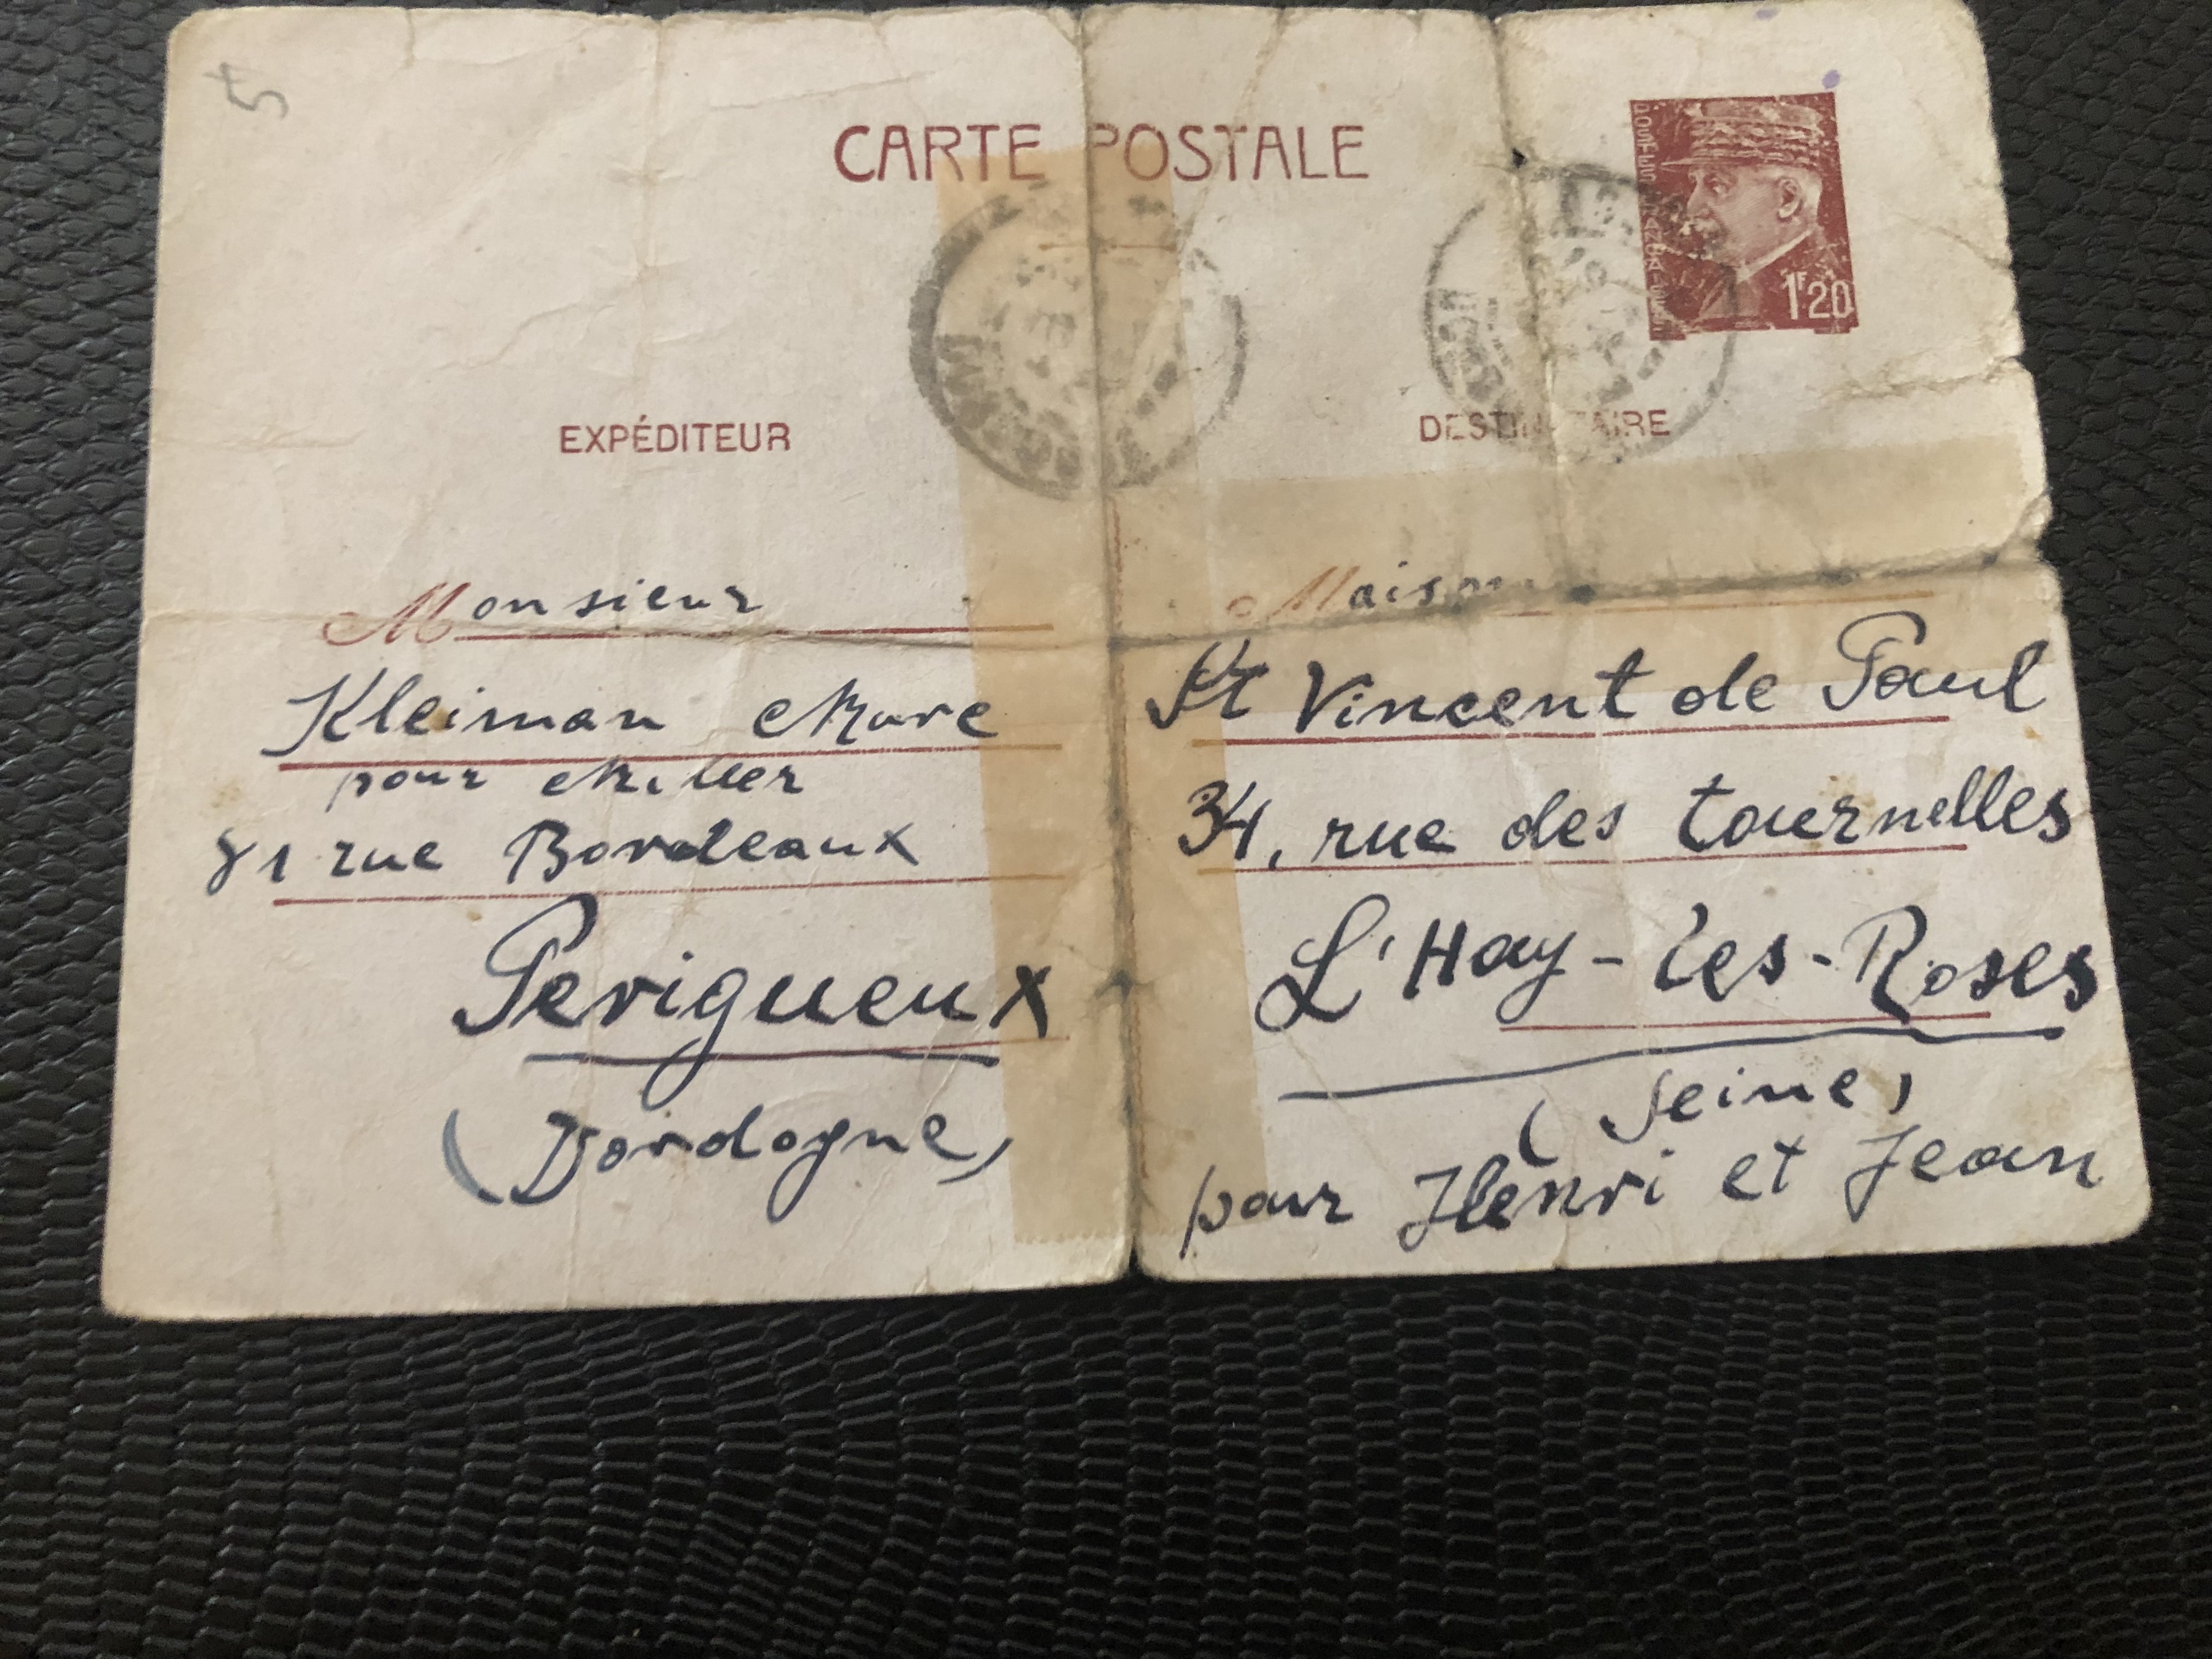 CARTE POSTALE
POSTES FRANÇAISES
1F20
EXPÉDITEUR
Monsieur
Kleiman Marc
pour Miller
81 rue Bordeaux
Perigueux
(Dordogne)
DESTINATAIRE
Maison
St Vincent de Paul
34, rue des tournelles
L'Hay-les-Roses
(Seine)
pour Henri et Jean